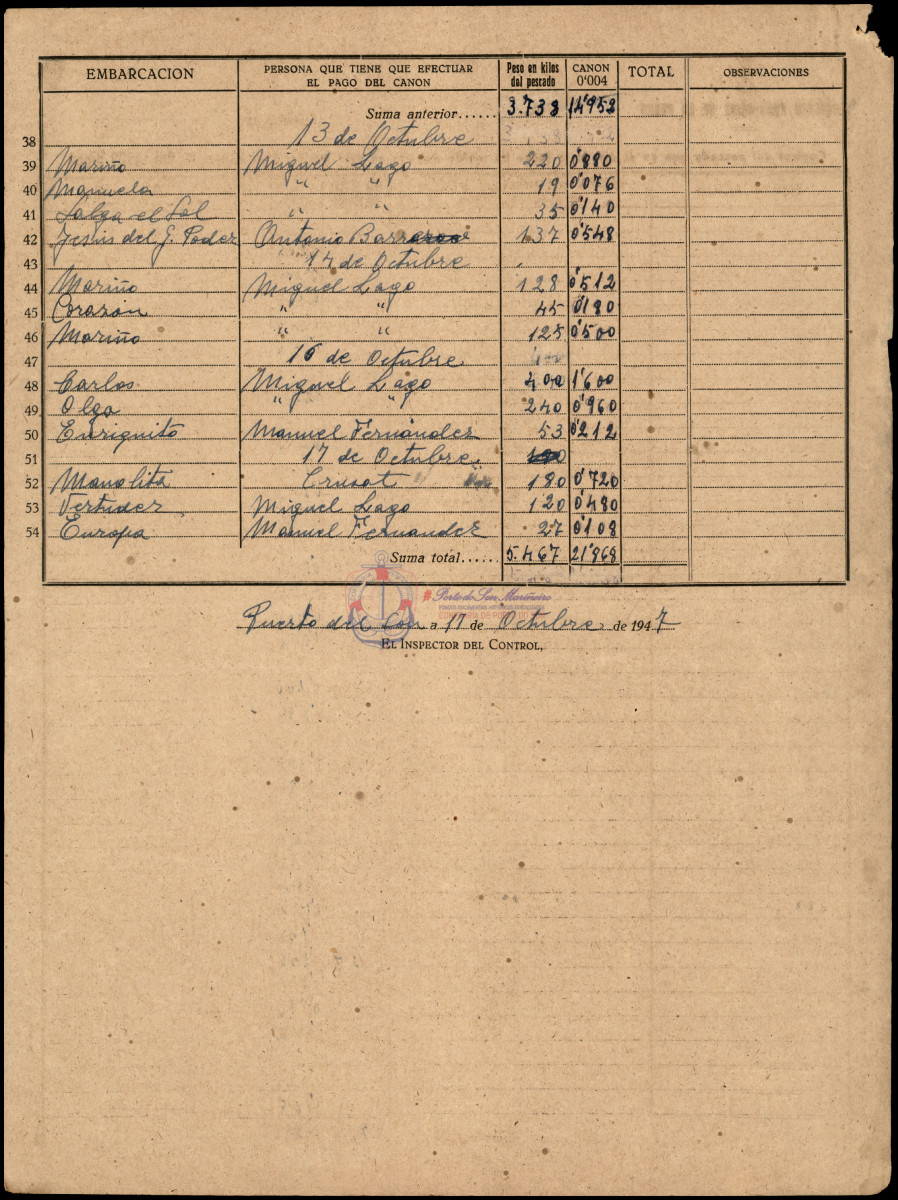 EMBARCACION PERSONA QUE TIENE QUE EFECTUAR EL PAGO DEL CANON Peso en kilos del pescado CANON 0'004 TOTAL OBSERVACIONES
Suma anterior...... 3.738 14'952
38 13 de Octubre
39 Mariño Miguel Lago 220 0'880
40 Manuela " " 19 0'076
41 Salga el Sol " " 35 0'140
42 Jesús del G. Poder Antonio 137 0'548
43 14 de Octubre
44 Mariño Miguel Lago 128 0'512
45 Corazón " " 45 0'180
46 Mariño " " 125 0'500
47 16 de Octubre
48 Carlos Miguel Lago 400 1'600
49 Olga " " 240 0'960
50 Enriquito Manuel Fernández 53 0'212
51 17 de Octubre
52 Manolita Crusat 180 0'720
53 Vertider Miguel Lago 120 0'480
54 Europa Manuel Fernandez 27 0'108
Suma total..... 5.467 21'868
#Porto de Son Mariñeiro
Puerto del Son a 17 de Octubre de 1947
EL INSPECTOR DEL CONTROL,